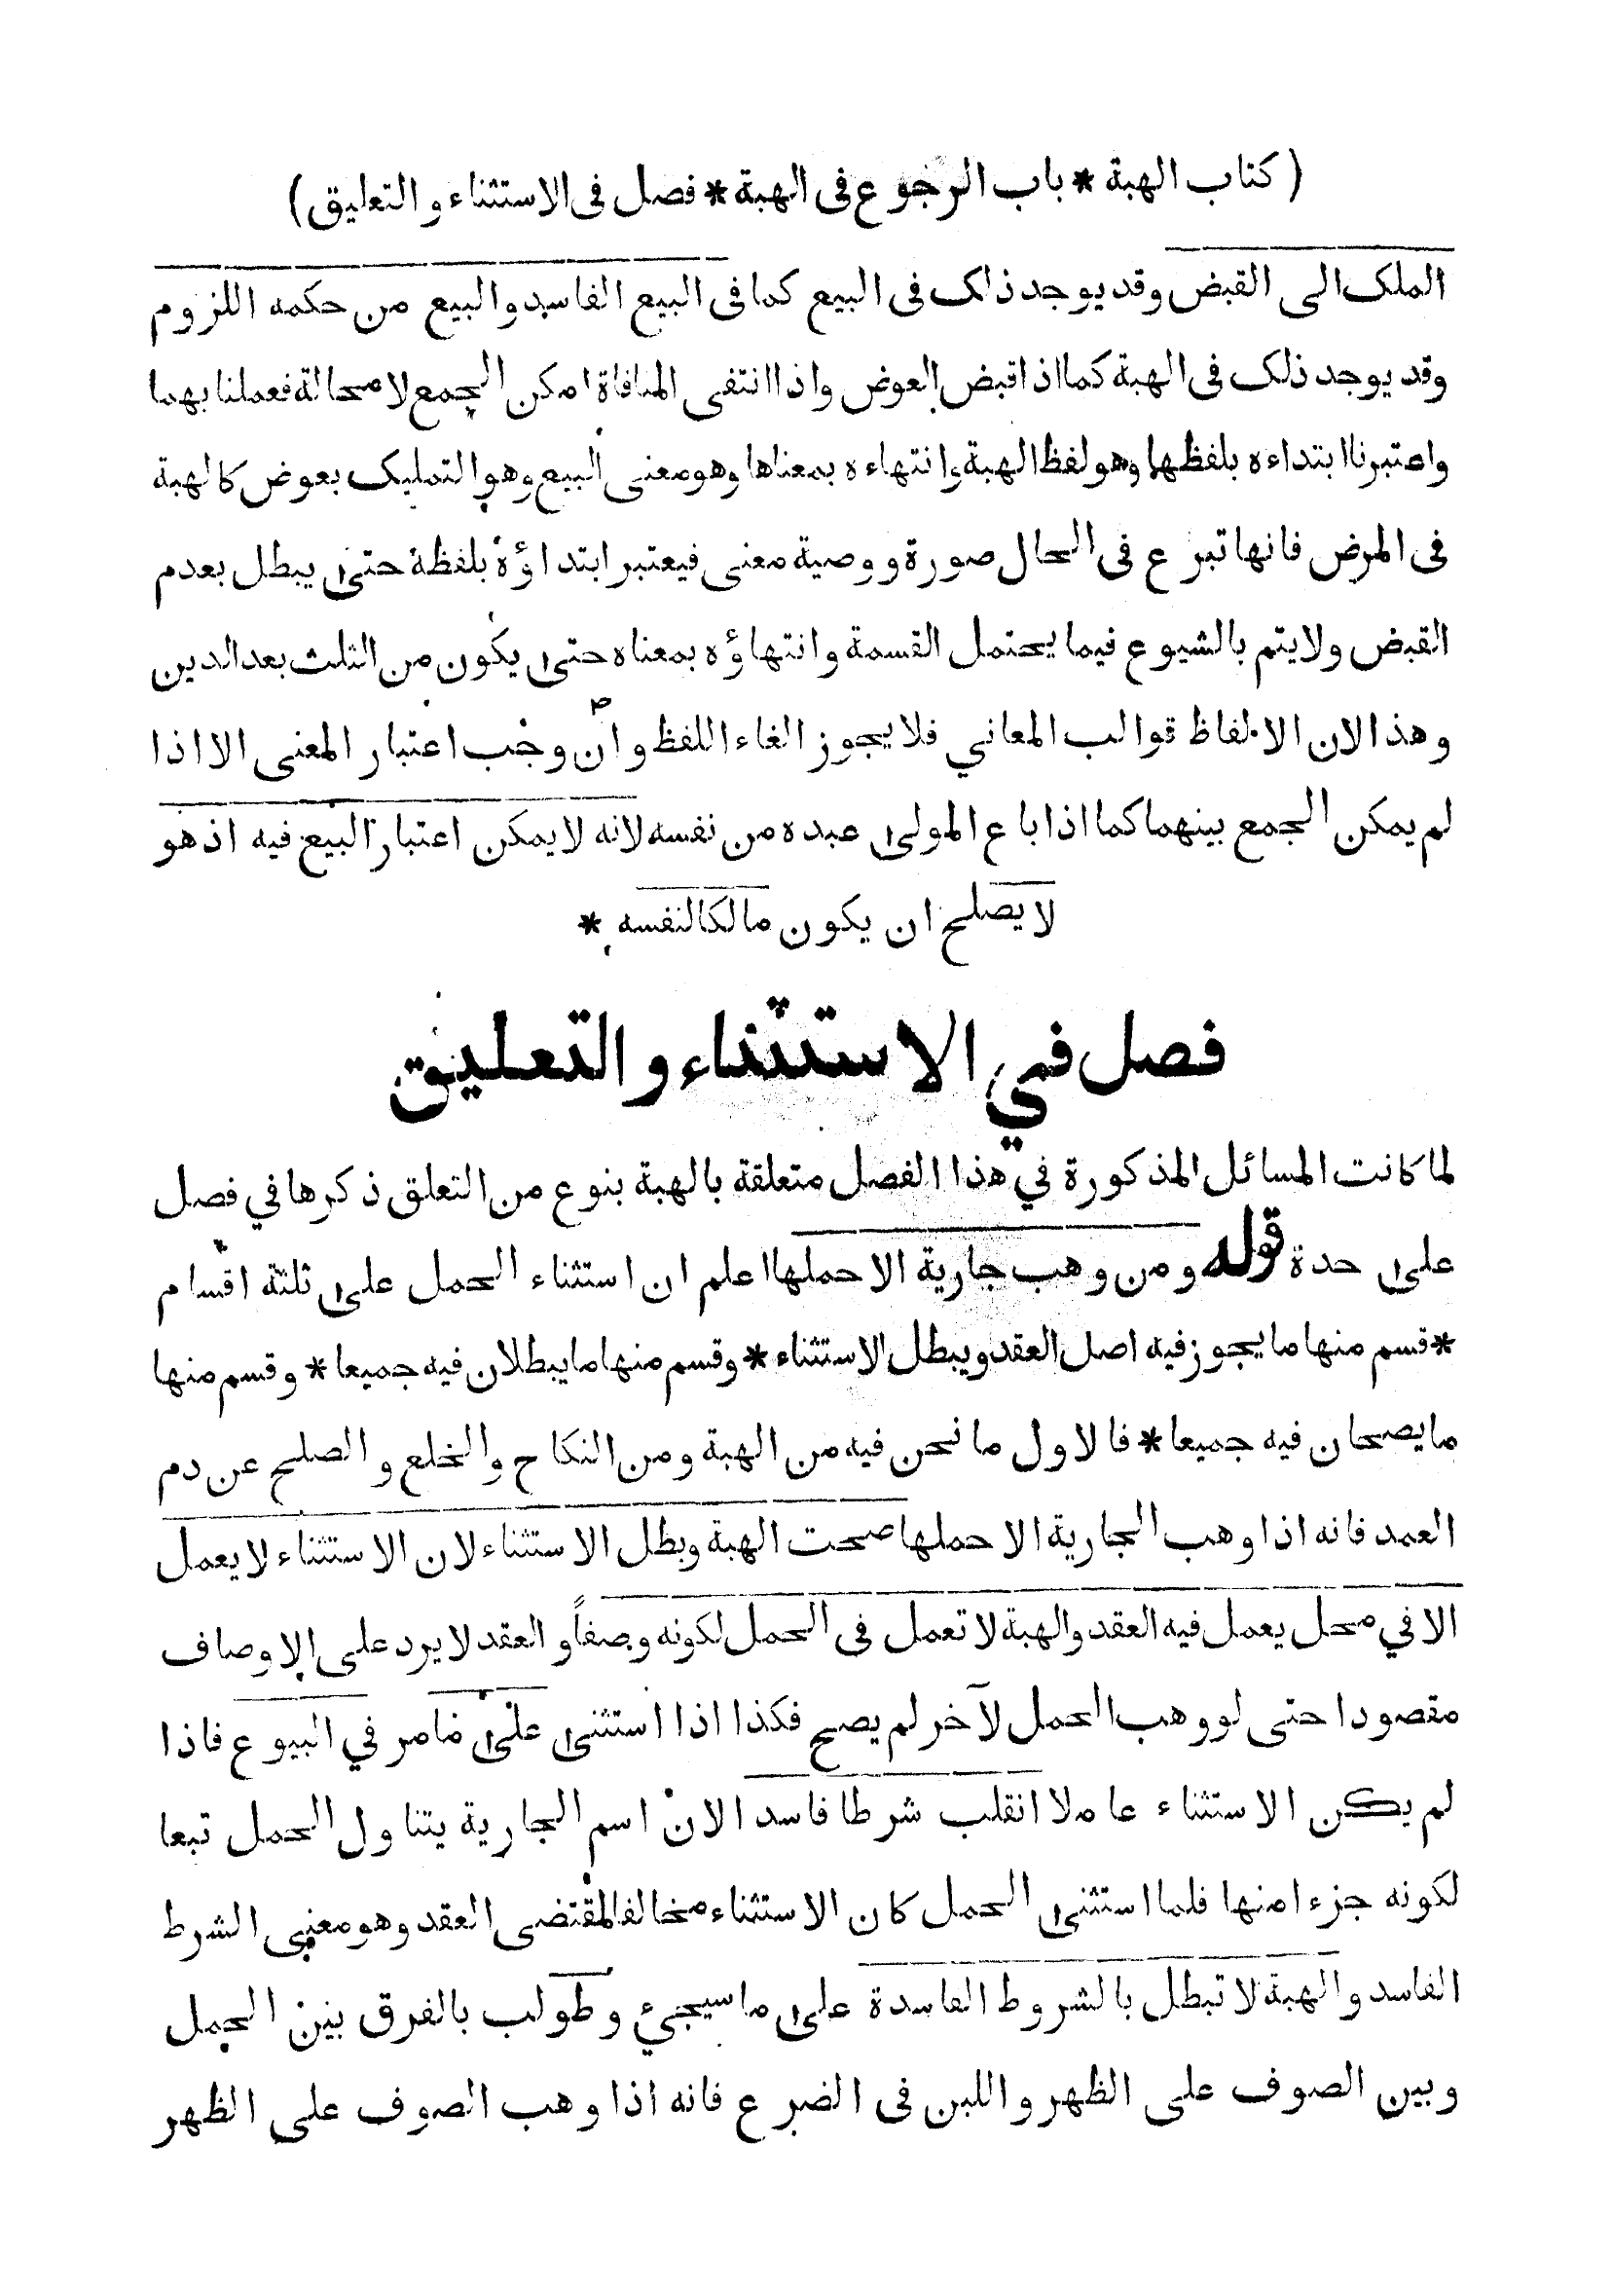 ( كتاب الهبة * باب الرجوع فى الهبة * فصل فى الاستثناء والتعليق )
الملك الى القبض وقد يوجد ذلك فى البيع كما فى البيع الفاسد والبيع من حكمه اللزوم
وقد يوجد ذلك فى الهبة كما اذا قبض العوض واذا انتفى المنافاة امكن الجمع لا محالة فعملنا بهما
واعتبرنا ابتداءه بلفظها وهو لفظ الهبة وانتهاءه بمعناها وهو معنى البيع وهو التمليك بعوض كالهبة
فى المرض فانها تبرع فى الحال صورة ووصية معنى فيعتبر ابتداؤه بلفظة حتى يبطل بعدم
القبض ولا يتم بالشيوع فيما يحتمل القسمة وانتهاؤه بمعناه حتى يكون من الثلث بعد الدين
وهذا لان الالفاظ قوالب المعاني فلا يجوز الغاء اللفظ وان وجب اعتبار المعنى الا اذا
لم يمكن الجمع بينهما كما اذا باع المولى عبده من نفسه لانه لا يمكن اعتبار البيع فيه اذ هو
لا يصلح ان يكون مالكا لنفسه *
فصل في الاستثناء والتعليق
لما كانت المسائل المذكورة في هذا الفصل متعلقة بالهبة بنوع من التعلق ذكرها في فصل
على حدة قوله ومن وهب جارية الا حملها اعلم ان استثناء الحمل على ثلثة اقسام
* قسم منها ما يجوز فيه اصل العقد ويبطل الاستثناء * وقسم منها ما يبطلان فيه جميعا * وقسم منها
ما يصحان فيه جميعا * فالاول ما نحن فيه من الهبة ومن النكاح والخلع والصلح عن دم
العمد فانه اذا وهب الجارية الا حملها صحت الهبة وبطل الاستثناء لان الاستثناء لا يعمل
الا في محل يعمل فيه العقد والهبة لا تعمل فى الحمل لكونه وصفاً والعقد لا يرد على الاوصاف
مقصودا حتى لو وهب الحمل لآخر لم يصح فكذا اذا استثنى على ما مر في البيوع فاذا
لم يكن الاستثناء عاملا انقلب شرطا فاسدا لان اسم الجارية يتناول الحمل تبعا
لكونه جزءا منها فلما استثنى الحمل كان الاستثناء مخالفا لمقتضى العقد وهو معنى الشرط
الفاسد والهبة لا تبطل بالشروط الفاسدة على ما سيجئ وطولب بالفرق بين الحمل
وبين الصوف على الظهر واللبن فى الضرع فانه اذا وهب الصوف على الظهر